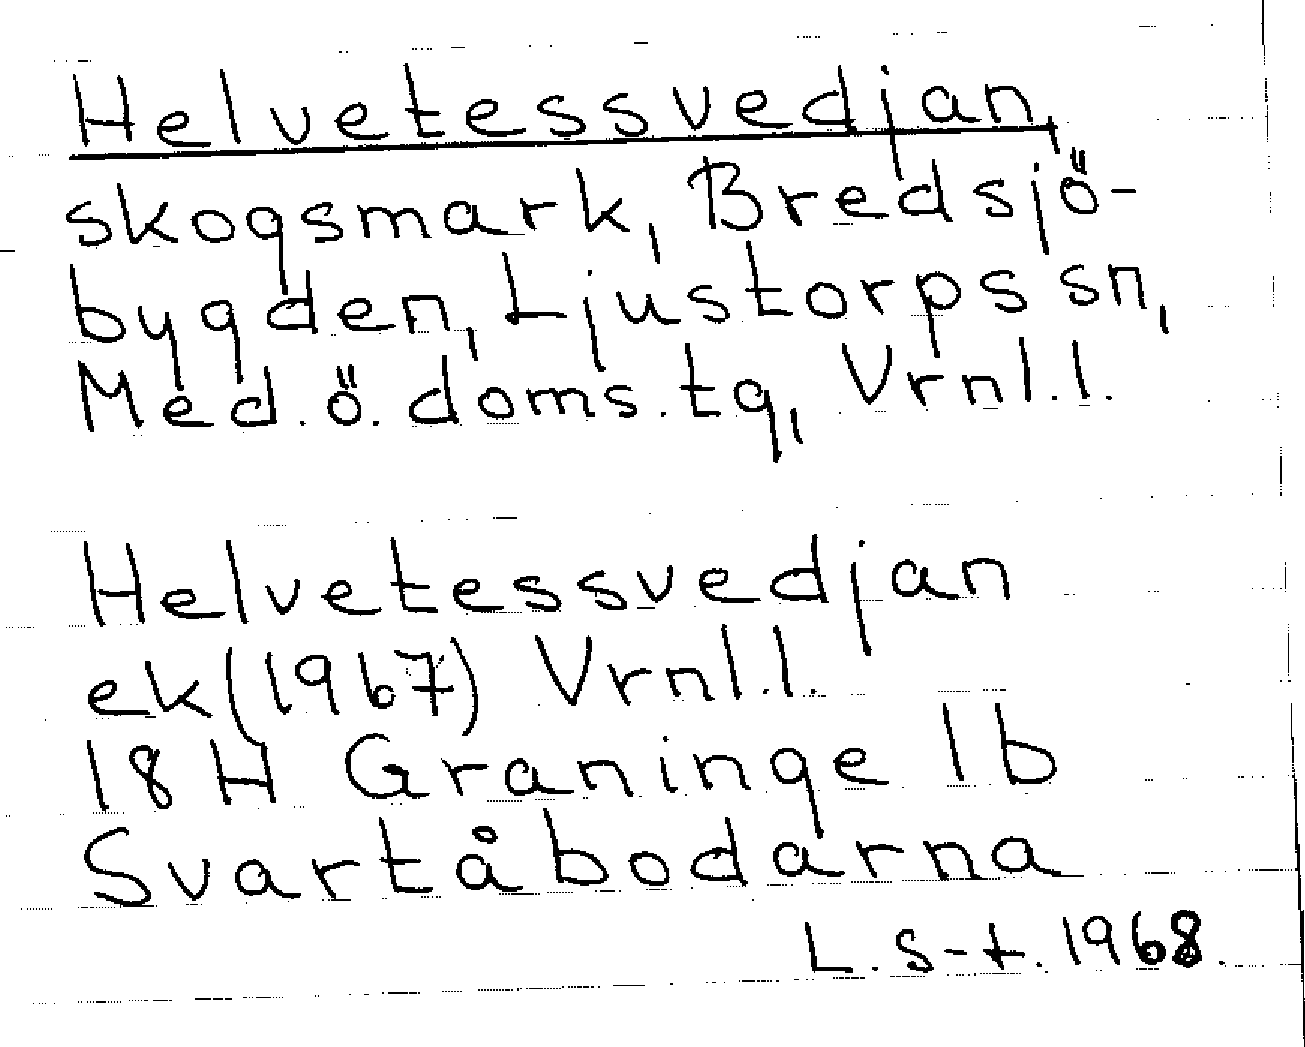 Helvetessvedjan,
skogsmark, Bredsjö-
bygden, Ljustorps sn,
Med.ö.doms.tg, Vrnl.l.
Helvetessvedjan
ek(1967) Vrnl.l.
18H Graninge 1b
Svartåbodarna
L.S-t.1968.